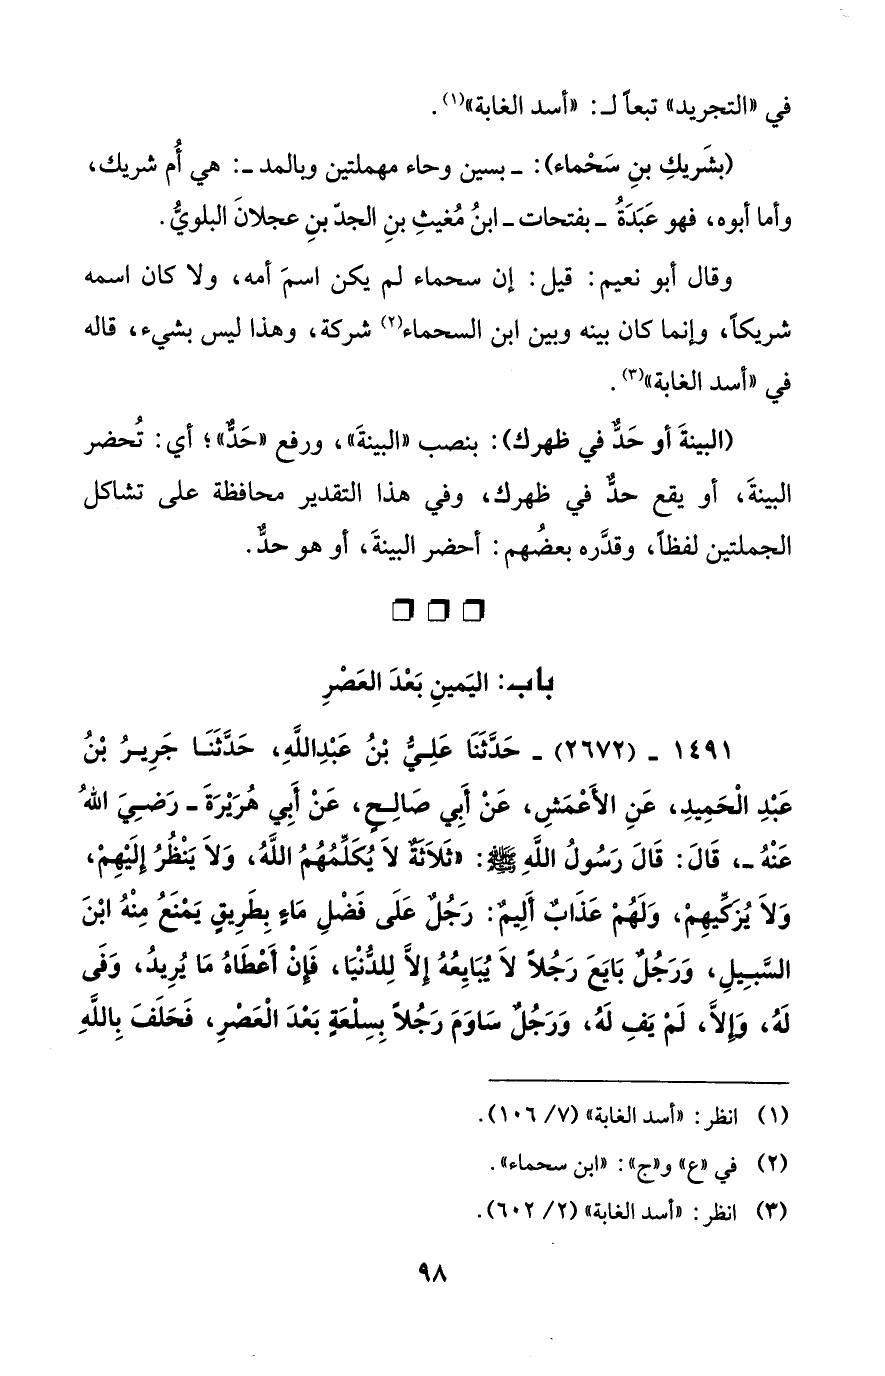 في «التجريد» تبعاً لـ: «أسد الغابة»(١).
(بشَريكِ بنِ سَحْماء): ـ بسين وحاء مهملتين وبالمد ـ: هي أُم شريك،
وأما أبوه، فهو عَبَدَةُ ـ بفتحات ـ ابنُ مُغيثِ بنِ الجدّ بنِ عجلانَ البلويُّ.
وقال أبو نعيم: قيل: إن سحماء لم يكن اسمَ أمه، ولا كان اسمه
شريكاً، وإنما كان بينه وبين ابن السحماء(٢) شركة، وهذا ليس بشيء، قاله
في «أسد الغابة»(٣).
(البينةَ أو حَدٌّ في ظهرك): بنصب «البينةَ»، ورفع «حَدٌّ»؛ أي: تُحضر
البينةَ، أو يقع حدٌّ في ظهرك، وفي هذا التقدير محافظة على تشاكل
الجملتين لفظاً، وقدَّره بعضُهم: أحضر البينةَ، أو هو حدٌّ.
❒ ❒ ❒
باب: اليَمينِ بَعْدَ العَصْرِ
١٤٩١ ـ (٢٦٧٢) ـ حَدَّثَنَا عَلِيُّ بْنُ عَبْدِاللَّهِ، حَدَّثَنَا جَرِيرُ بْنُ
عَبْدِ الْحَمِيدِ، عَنِ الأَعْمَشِ، عَنْ أَبِي صَالِحٍ، عَنْ أَبِي هُرَيْرَةَ ـ رَضِيَ اللهُ
عَنْهُ ـ، قَالَ: قَالَ رَسُولُ اللَّهِ ﷺ: «ثَلاَثَةٌ لاَ يُكَلِّمُهُمُ اللَّهُ، وَلاَ يَنْظُرُ إِلَيْهِمْ،
وَلاَ يُزَكِّيهِمْ، وَلَهُمْ عَذَابٌ أَلِيمٌ: رَجُلٌ عَلَى فَضْلِ مَاءٍ بِطَرِيقٍ يَمْنَعُ مِنْهُ ابْنَ
السَّبِيلِ، وَرَجُلٌ بَايَعَ رَجُلاً لاَ يُبَايِعُهُ إِلاَّ لِلدُّنْيَا، فَإِنْ أَعْطَاهُ مَا يُرِيدُ، وَفَى
لَهُ، وَإِلاَّ، لَمْ يَفِ لَهُ، وَرَجُلٌ سَاوَمَ رَجُلاً بِسِلْعَةٍ بَعْدَ الْعَصْرِ، فَحَلَفَ بِاللَّهِ
(١) انظر: «أسد الغابة» (٧/ ١٠٦).
(٢) في «ع» و«ج»: «ابن سحماء».
(٣) انظر: «أسد الغابة» (٢/ ٦٠٢).
٩٨